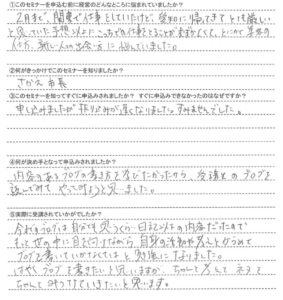 ①このセミナーを申込む前に経営のどんなところに悩まれていましたか？
2月まで、関東で仕事をしていたけど、愛知に帰ってきてとても厳しい
と思っていた予想以上に、こっちでの仕事とることが
仕方、新しい人の出会い方に悩んでいました。
②何がきっかけでこのセミナーを知りましたか？
さかえ市長
③このセミナーを知ってすぐに申込みされましたか？ すぐに申込みできなかったのはなぜですか？
申し込みましたが振り込みが遅くなりました。すみませんでした。
④何が決め手となって申込みされましたか？
内容のあるブログの書き方を学びたかったから、受講生のブログを
読んでみてやって行けると思いました。
⑤実際に受講されていかがでしたか？
今までのブログは自分でも
もっと世の中に目を向けながら、自身の活動や
ブログを書いていかなくてはと勉強になりました。
はやくブログを書きたいと思いますが、ちゃんと ネタを
ちゃんと みつけていきたいと思います。